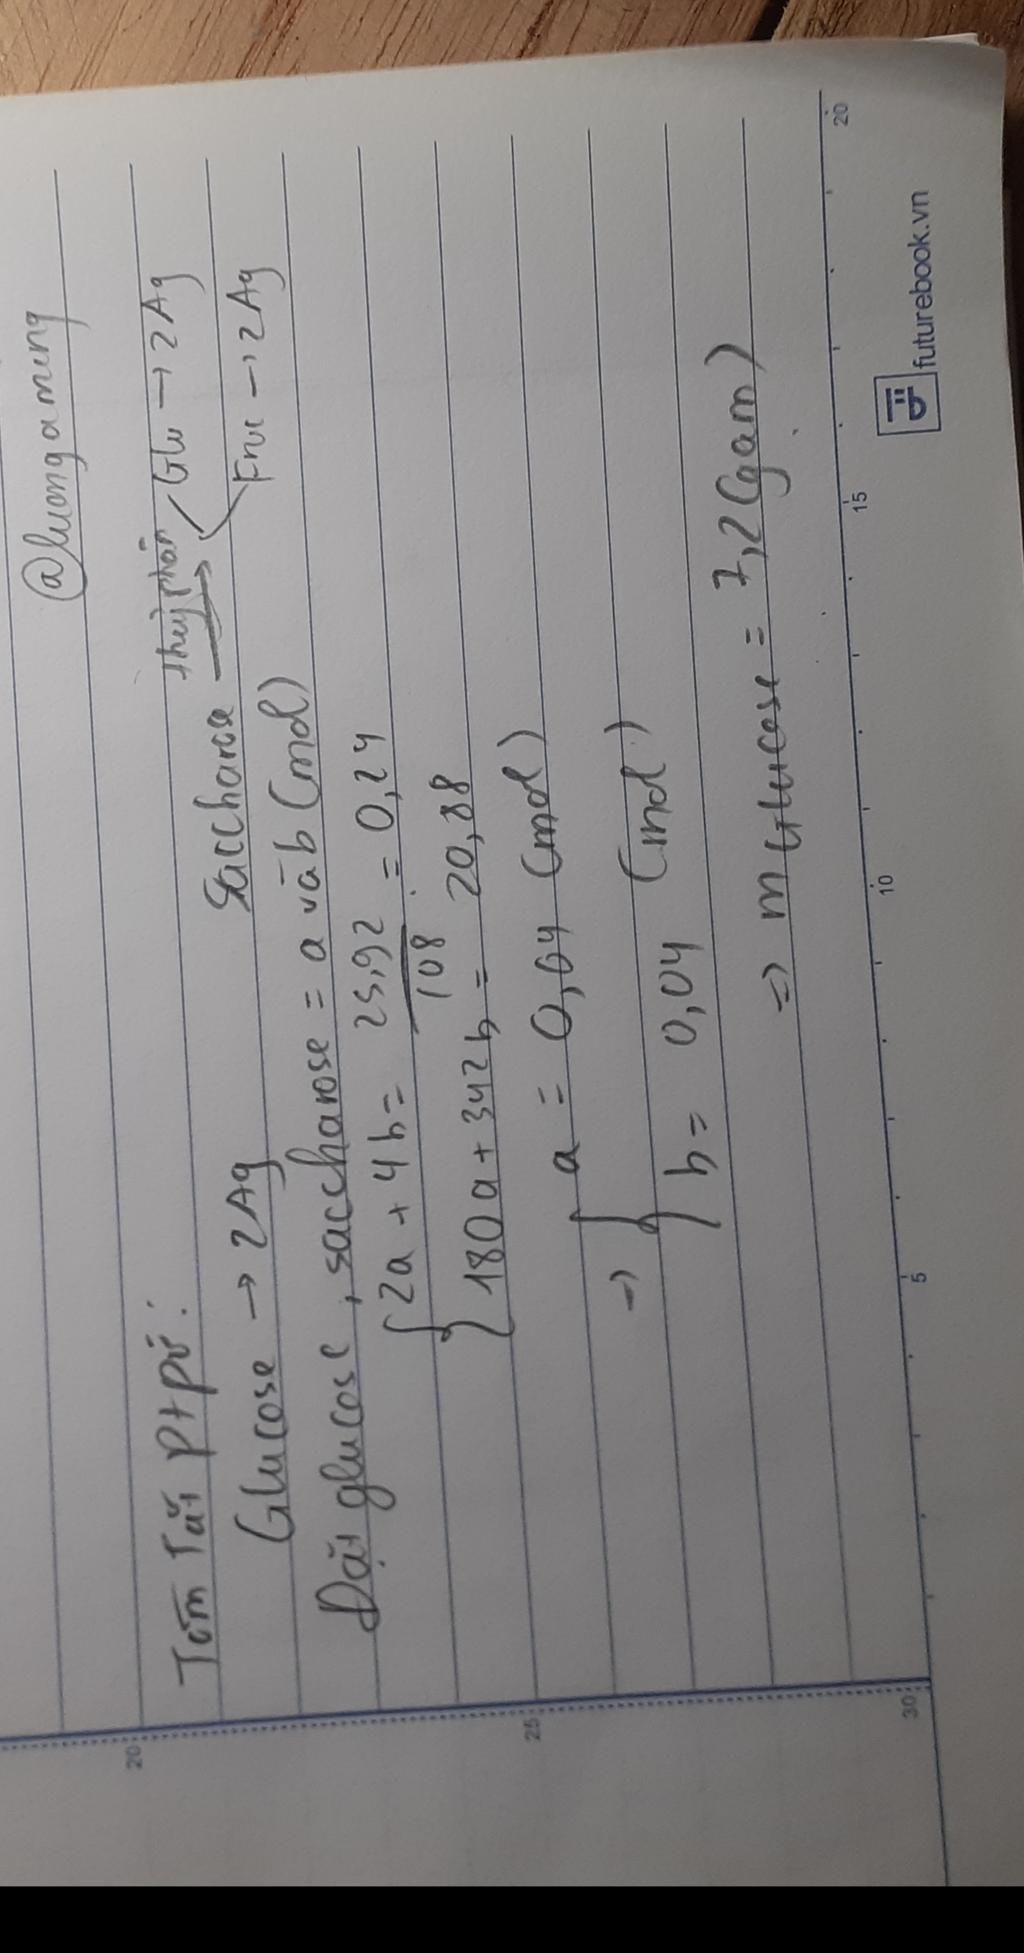 @luongamung
Tóm Tắt PTPƯ:
Glucose → 2Ag Saccharose thuỷ phân → Glu → 2Ag
Fruc → 2Ag
Đặt glucose, saccharose = a và b (mol)
{ 2a + 4b = 25,92 / 108 = 0,24
180a + 342b = 20,88
=> { a = 0,04 (mol)
b = 0,04 (mol)
=> m Glucose = 7,2 (gam)
5 10 15 20
20 25 30
futurebook.vn